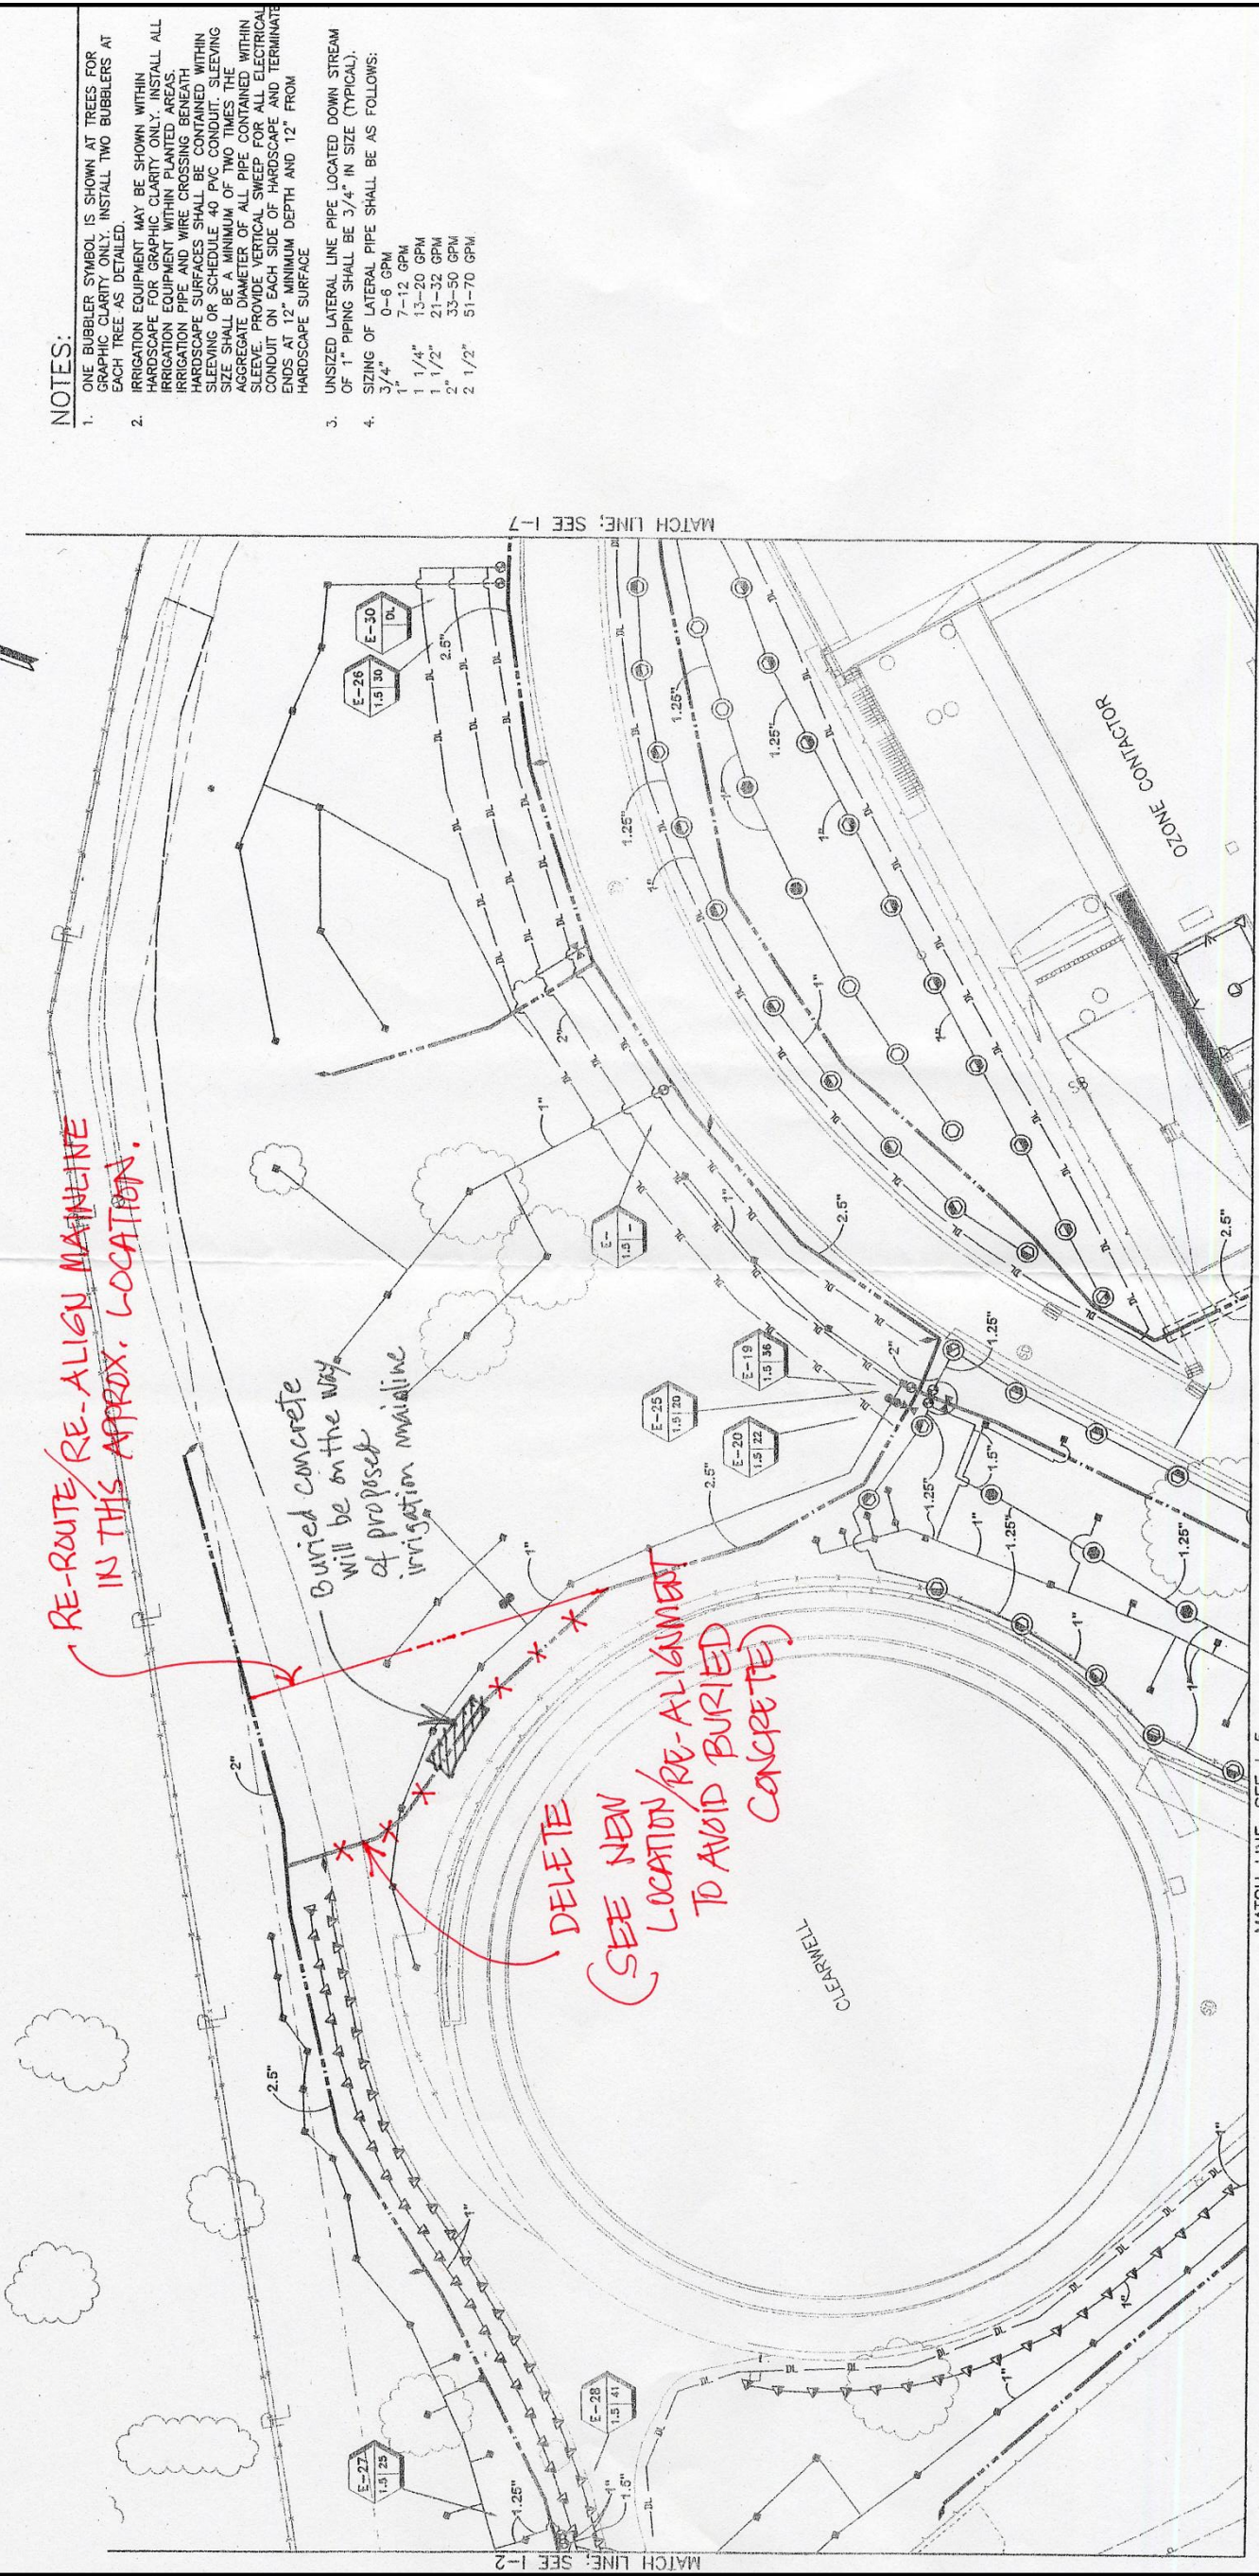 NOTES:
1. ONE BUBBLER SYMBOL IS SHOWN AT TREES FOR
GRAPHIC CLARITY ONLY. INSTALL TWO BUBBLERS AT
EACH TREE AS DETAILED.
2. IRRIGATION EQUIPMENT MAY BE SHOWN WITHIN
HARDSCAPE FOR GRAPHIC CLARITY ONLY. INSTALL ALL
IRRIGATION EQUIPMENT WITHIN PLANTED AREAS.
IRRIGATION PIPE AND WIRE CROSSING BENEATH
HARDSCAPE SURFACES SHALL BE CONTAINED WITHIN
SLEEVING OR SCHEDULE 40 PVC CONDUIT. SLEEVING
SIZE SHALL BE A MINIMUM OF TWO TIMES THE
AGGREGATE DIAMETER OF ALL PIPE CONTAINED WITHIN
SLEEVE. PROVIDE VERTICAL SWEEP FOR ALL ELECTRICAL
CONDUIT ON EACH SIDE OF HARDSCAPE AND TERMINATE
ENDS AT 12" MINIMUM DEPTH AND 12" FROM
HARDSCAPE SURFACE
3. UNSIZED LATERAL LINE PIPE LOCATED DOWN STREAM
OF 1" PIPING SHALL BE 3/4" IN SIZE (TYPICAL).
4. SIZING OF LATERAL PIPE SHALL BE AS FOLLOWS:
3/4" 0-6 GPM
1" 7-12 GPM
1 1/4" 13-20 GPM
1 1/2" 21-32 GPM
2" 33-50 GPM
2 1/2" 51-70 GPM
MATCH LINE; SEE I-7
RE-ROUTE/RE-ALIGN MAINLINE
IN THIS APPROX. LOCATION.
Buried concrete
will be on the way
of proposed
irrigation mainline
DELETE
(SEE NEW
LOCATION/RE-ALIGNMENT
TO AVOID BURIED
CONCRETE)
CLEARWELL
OZONE CONTACTOR
E-30
DL
E-26
1.5 30
E-
1.5 -
E-19
1.5 36
E-25
1.5 20
E-20
1.5 22
E-27
1.5 25
E-28
1.5 41
2.5"
1.25"
1.25"
1.25"
1"
1"
1"
1"
1"
2"
1"
1"
2.5"
2"
1.25"
2.5"
2.5"
1.5"
1.25"
1"
1.25"
1.25"
1"
1"
1"
2"
2.5"
1"
1.25"
1"
1.5"
1"
1"
1"
MATCH LINE; SEE I-2